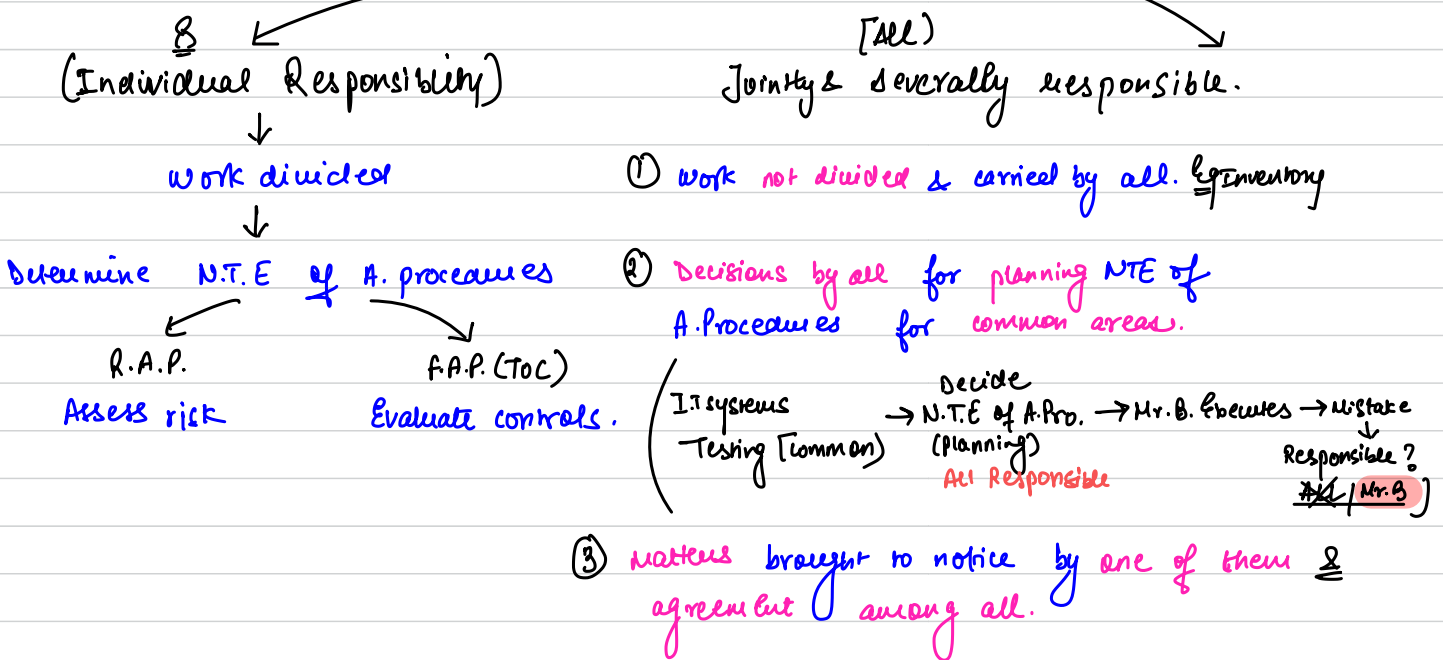 &
(Individual Responsiblity)
↓
Work divided
↓
Determine N.T.E of A. procedures
R.A.P.
Assess risk
F.A.P. (TOC)
Evaluate controls.
[All)
Jointly & severally responsible.
① Work not divided & carried by all. Eg Inventory
② Decisions by all for planning NTE of
A.Procedures for common areas.
I.T systems
Testing [Common)
→ Decide
N.T.E of A.Pro.
(planning)
All Responsible
→ Mr. B. Executes → Mistake
↓
Responsible?
All / Mr. B ]
③ Matters brought to notice by one of them &
agreement among all.